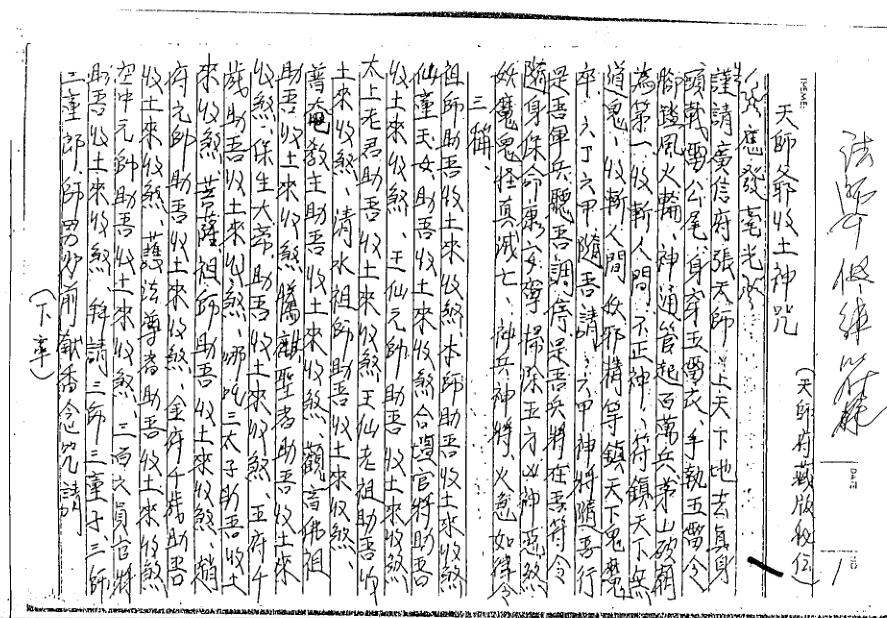 法師
NO. 1
DATE
天師爺收土神咒
（天師府藏版秘伝）
謹請廣信府張天師上天下地去真身
頭載雷公尾身穿五雷衣手執五雷令
腳踏風火輪神通管起百萬兵茅山破廟
為第一收斬人間不正神符鎮天下無
道鬼收斬人間妖邪精等鎮天下鬼魔
卒六丁六甲隨吾請六甲神將隨吾行
是吾軍兵聽吾調停是吾兵將在吾符令
隨身保命康安寧掃除五方凶神惡煞
妖魔鬼怪真滅亡、神兵神將火急如律令
三稱、
祖師助吾收土來收煞本師助吾收土來收煞
仙童玉女助吾收土來收煞合壇官將助吾
收土來收煞、王仙元帥助吾收土來收煞
太上老君助吾收土來收煞王仙老祖助吾收
土來收煞、清水祖師助吾收土來收煞、
普庵教主助吾收土來收煞、觀音佛祖
助吾收土來收煞騰離聖者助吾收土來
收煞、保生大帝助吾收土來收煞、王府千
歲助吾收土來收煞、哪吒三太子助吾收土
來收煞菩薩祖師助吾收土來收煞、趙
府元帥助吾收土來收煞、金府千歲助吾
收土來收煞、護法尊者助吾收土來收煞
空中元帥助吾收土來收煞、三百六員官將
助吾收土來收煞 拜請三師三童子、三師
三童郎、師男 前獻香念咒請
（下章）